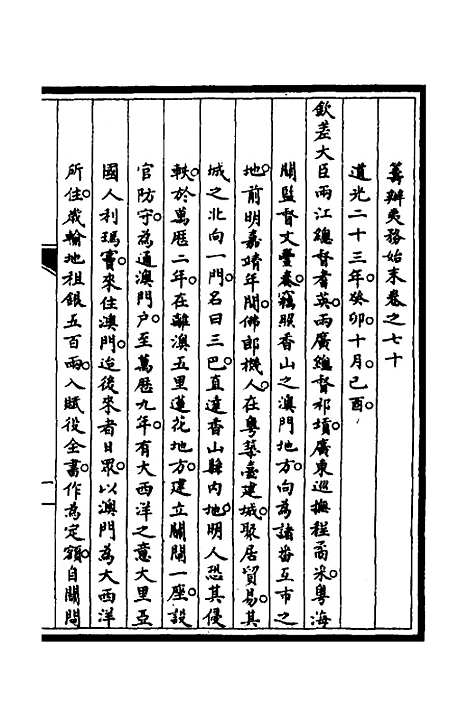 籌辦夷務始末卷之七十
道光二十三年癸卯。十月己酉。
欽差大臣兩江總督耆英。兩廣總督祁𡎴。廣東巡撫程矞采。粵海
關監督文豐奏。竊照香山之澳門地方。向為諸番互市之
地。前明嘉靖年間。佛郎機人。在粵築臺建城。聚居貿易。其
城之北向一門。名曰三巴。直達香山縣內地。明人恐其侵
軼。於萬厯二年。在離澳五里蓮花地方。建立關閘一座。設
官防守。為通澳門户。至萬厯九年。有大西洋之意大里亞
國人利瑪竇。來住澳門。迨後來者日眾。以澳門為大西洋
所住。歲輸地租銀五百兩。入賦役全書。作為定額。自關閘